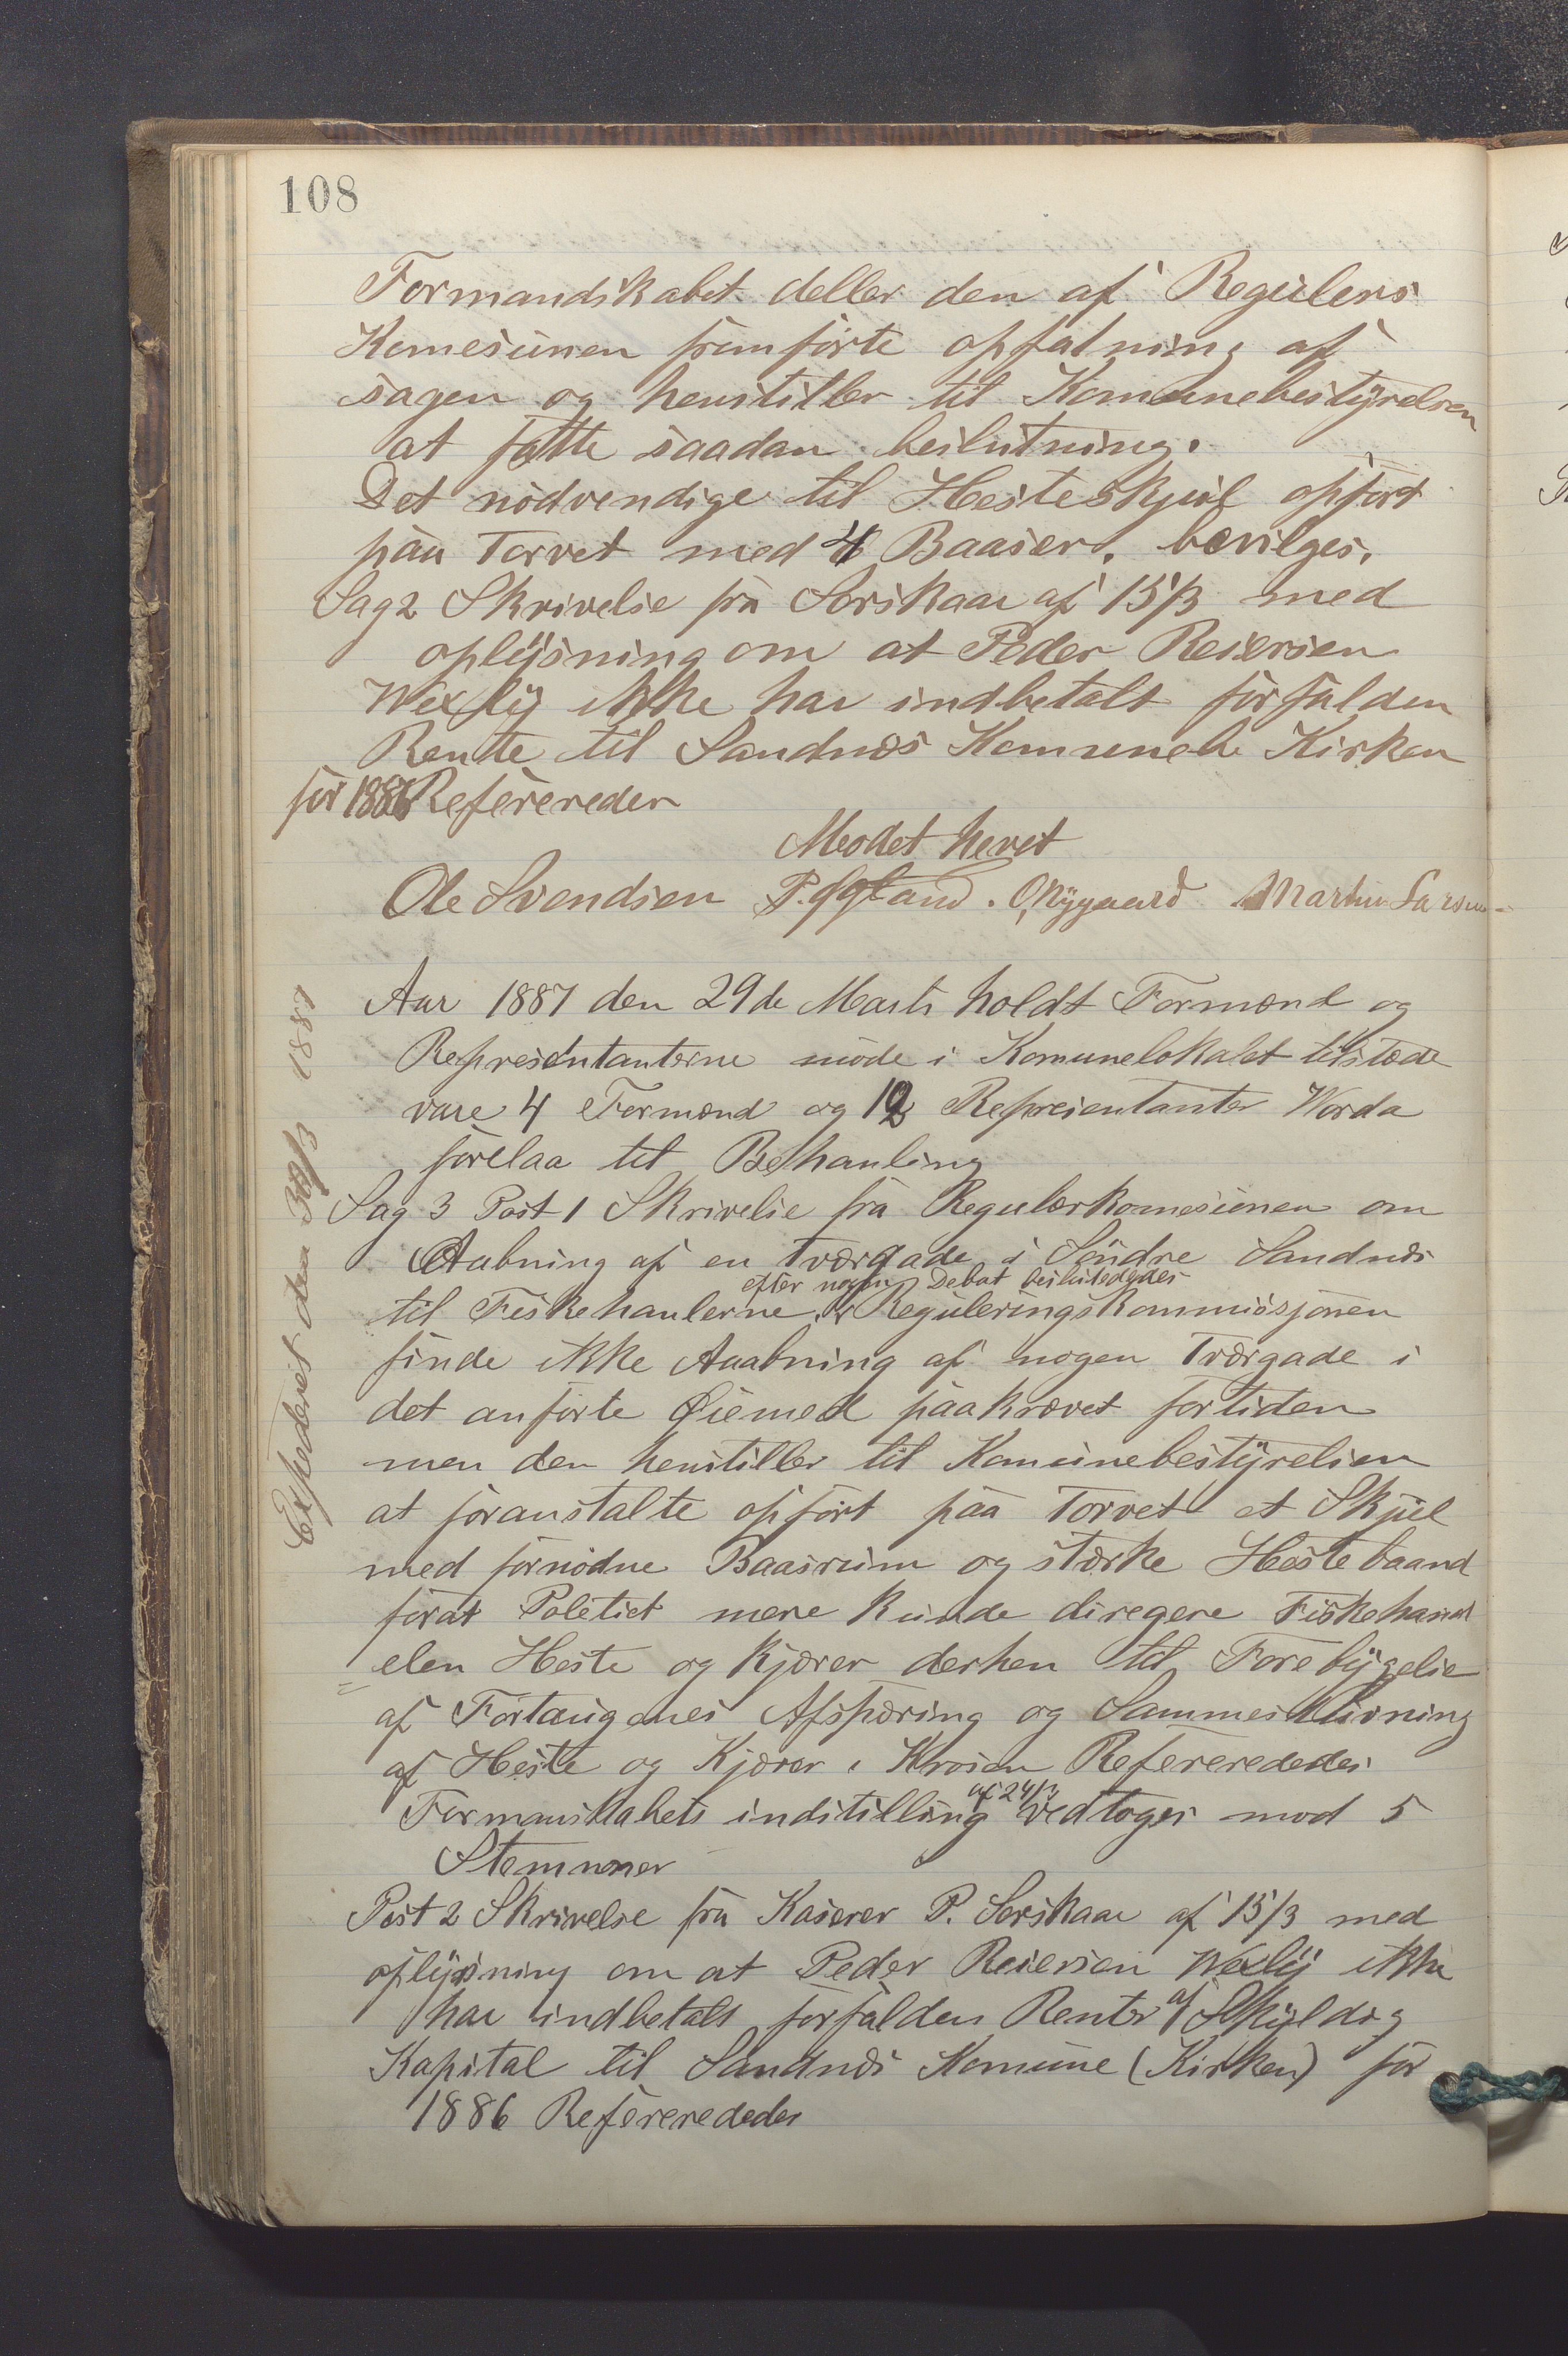 108
Formandskabet deller den af Regulers
Komesiunen fremførte opfatning af
sagen og henstiller til Komunebestyrelsen
at fatte saadan beslutning.
Det nødvendige til Hesteskjul opført
paa Torvet med 4 Baaser. bevilges.
Sag 2 Skrivelse fra Sørskaar af 15/3 med
oplysning om at Peder Reiersen
Wexly ikke har indbetalt forfalden
Rente til Sandnæs Komune Kirken
for 1886 Refereredes
Mødet hevet
Ole Svendsen P. Oftland. O, Nygaard Martin Larsen
Aar 1887 den 29de Marts holdt Formænd og
Represæntanterne møde i Komunelokalet tilstæde
vare 4 Formænd og 12 Represientanter Worda
forelaa til Behanling
Sag 3 Post 1 Skrivelse fra Regulerkomesiunen om
Aabning af en tværgade i Søndre Sandnæs
efter nogen Debat besluttedes
til Fiskehanlerne. Reguleringskommissjonen
finde ikke Aaabning af nogen Tværgade i
det anførte Øiemed paakrævet fortiden
men den henstiller til Komunebestyrelsen
at foranstalte opført paa Torvet et Skjul
med fornødne Baasrum og stærke Hestebaand
forat Politiet mere kunde diregere Fiskehand
elen Heste og Kjærer derhen til Forebygelse
af Fortaugenes Afspæring og Sammenstuvning
af Heste og Kjærer i Krysen Refereredes
af 24/3
Formanskabets indstilling vedtoges mod 5
Stemmer
Post 2 Skrivelse fra Kaserer P. Sørskaar af 15/3 med
oplysning om at Peder Reiersen Wexly ikke
har indbetalt forfalden Rente af Skyldig
Kapital til Sandnæs Komune (Kirken) for
1886 Refereredes
Expederet den 30/3 1887